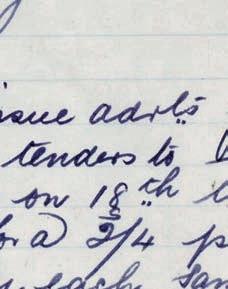 issue advts
tenders to
on 18th
for a 2/4 p
each sam